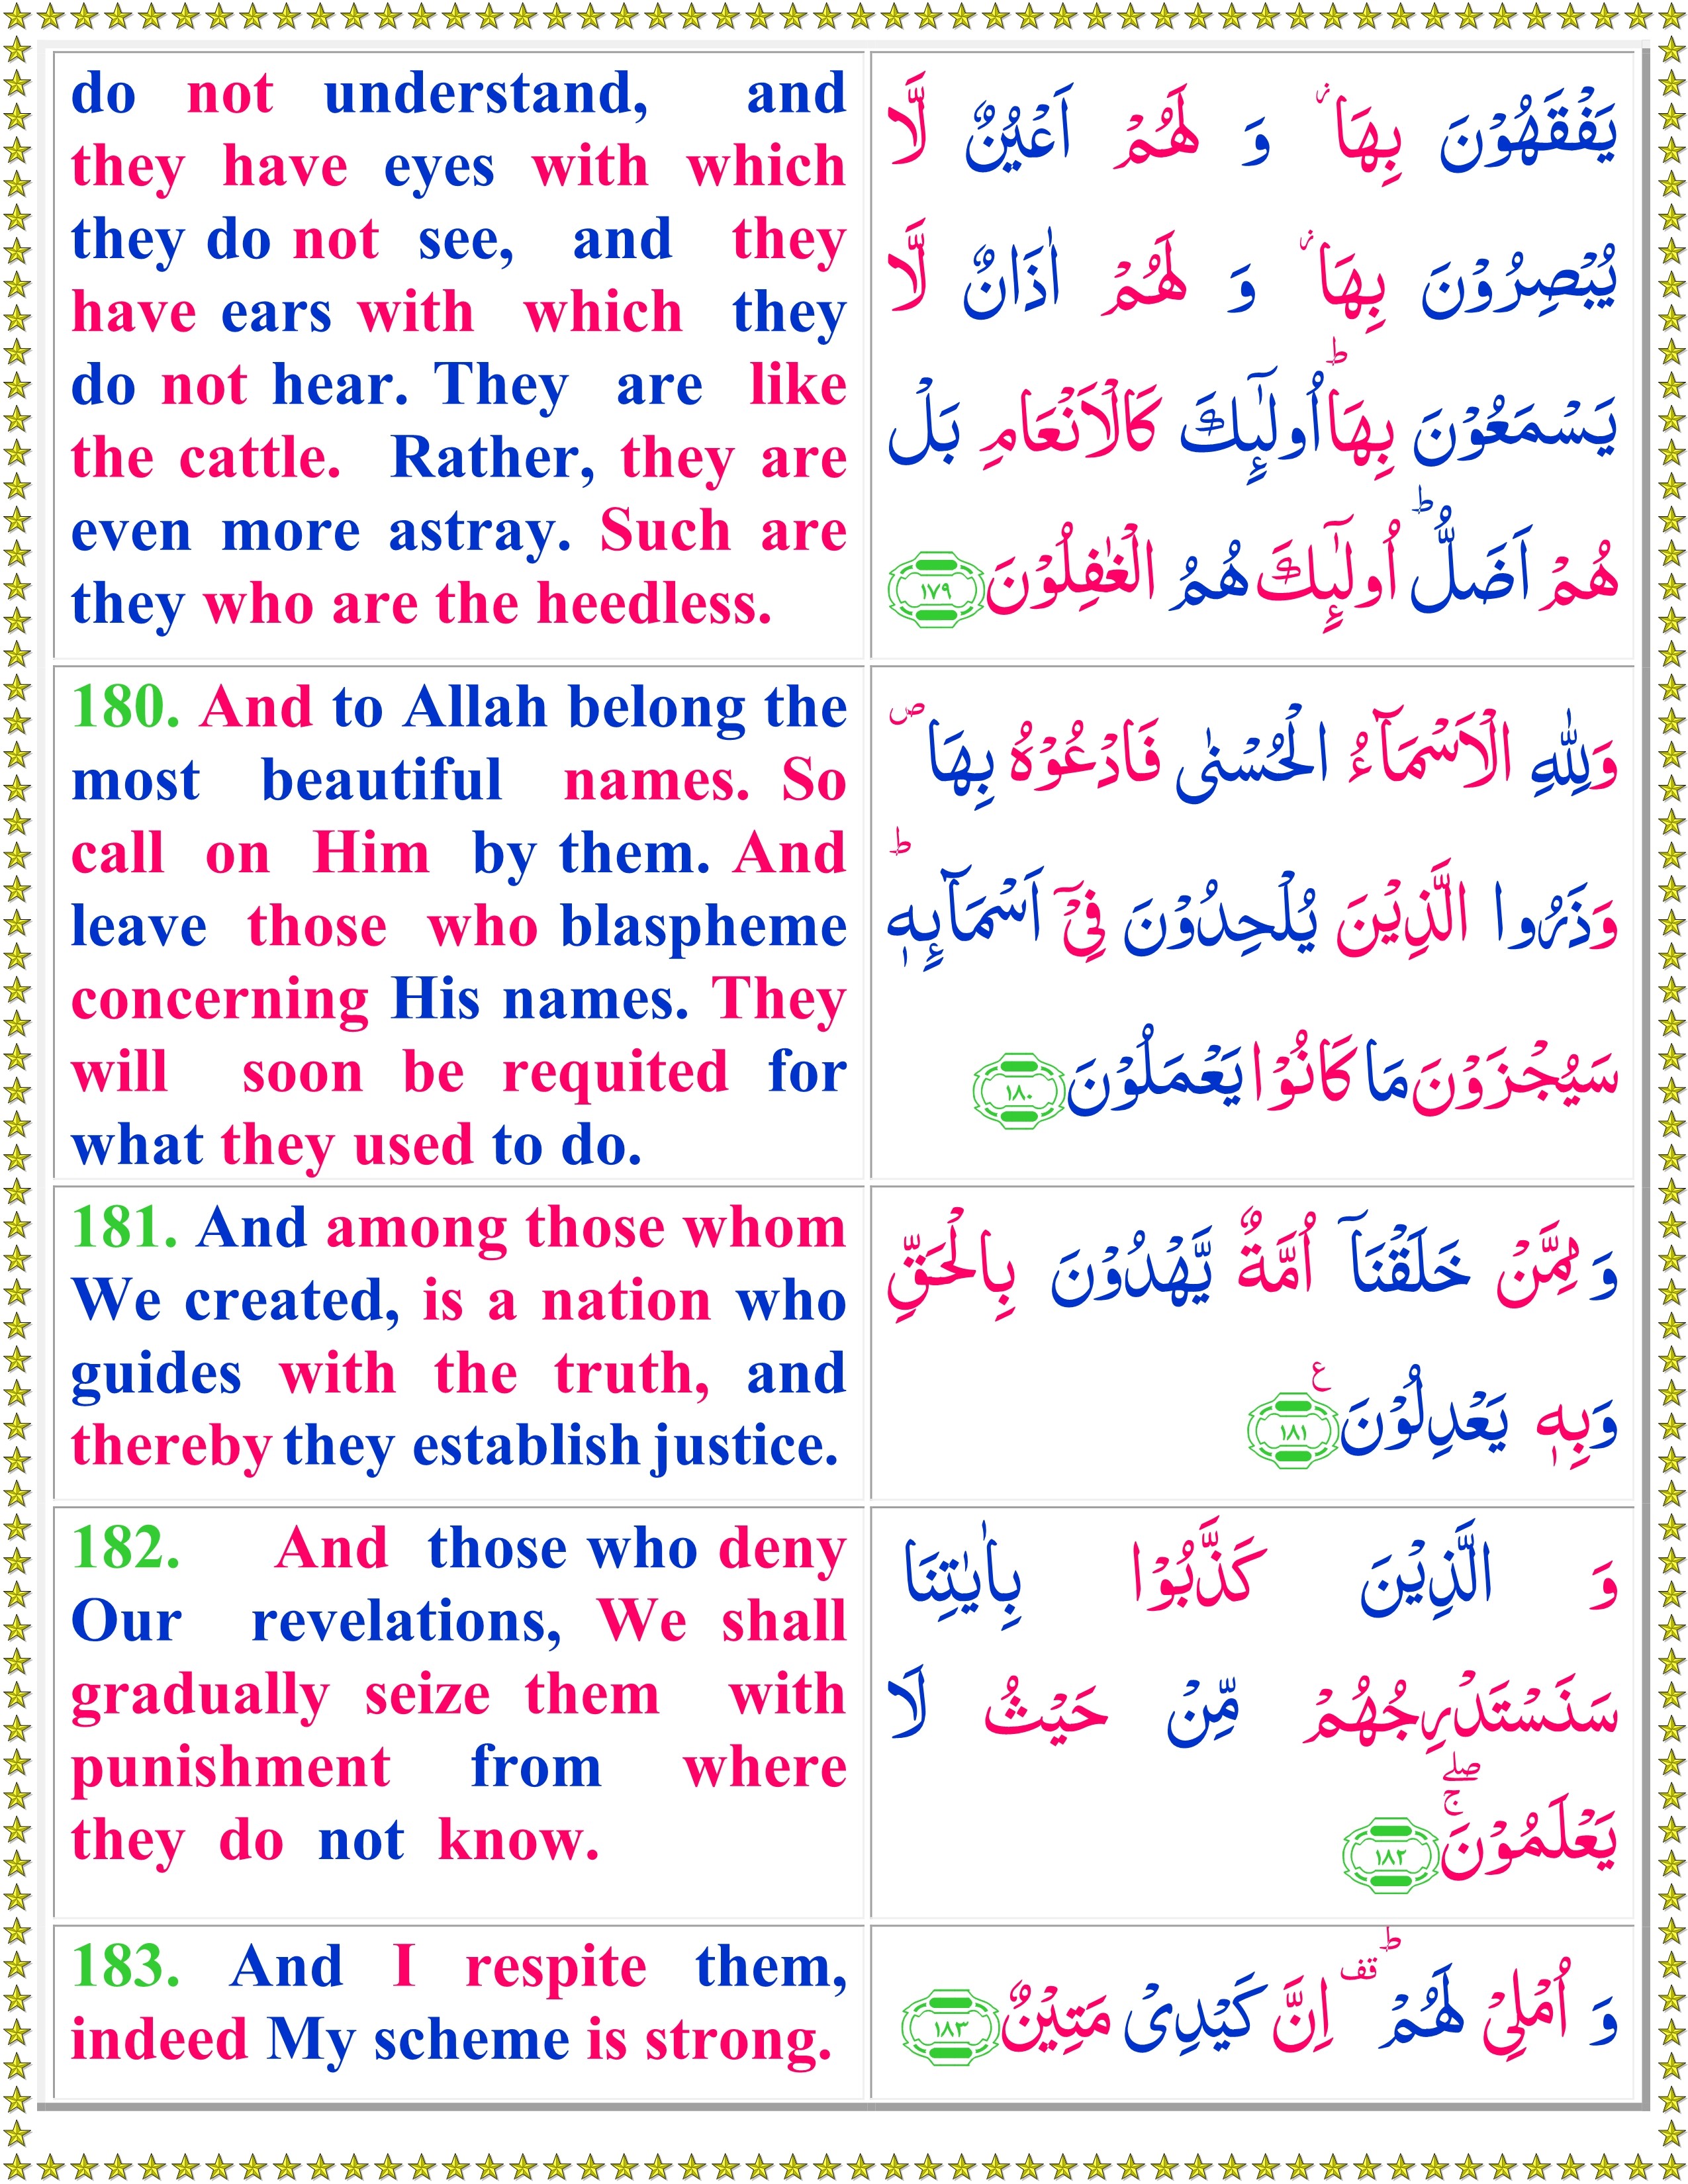 do not understand, and
they have eyes with which
they do not see, and they
have ears with which they
do not hear. They are like
the cattle. Rather, they are
even more astray. Such are
they who are the heedless.
يَفْقَهُوْنَ بِهَا ۫ وَ لَهُمْ اَعْيُنٌ لَّا
يُبْصِرُوْنَ بِهَا ۫ وَ لَهُمْ اٰذَانٌ لَّا
يَسْمَعُوْنَ بِهَا ؕ اُولٰٓىِٕكَ كَالْاَنْعَامِ بَلْ
هُمْ اَضَلُّ ؕ اُولٰٓىِٕكَ هُمُ الْغٰفِلُوْنَ ١٧٩
180. And to Allah belong the
most beautiful names. So
call on Him by them. And
leave those who blaspheme
concerning His names. They
will soon be requited for
what they used to do.
وَلِلّٰهِ الْاَسْمَآءُ الْحُسْنٰى فَادْعُوْهُ بِهَا ۪
وَذَرُوا الَّذِيْنَ يُلْحِدُوْنَ فِيْۤ اَسْمَآىِٕهٖ ؕ
سَيُجْزَوْنَ مَا كَانُوْا يَعْمَلُوْنَ ١٨٠
181. And among those whom
We created, is a nation who
guides with the truth, and
thereby they establish justice.
وَ مِمَّنْ خَلَقْنَاۤ اُمَّةٌ يَّهْدُوْنَ بِالْحَقِّ
وَبِهٖ يَعْدِلُوْنَ ١٨١ ع
182. And those who deny
Our revelations, We shall
gradually seize them with
punishment from where
they do not know.
وَ الَّذِيْنَ كَذَّبُوْا بِاٰيٰتِنَا
سَنَسْتَدْرِجُهُمْ مِّنْ حَيْثُ لَا
يَعْلَمُوْنَ ۚۖ ١٨٢
183. And I respite them,
indeed My scheme is strong.
وَ اُمْلِيْ لَهُمْ ؕ قف اِنَّ كَيْدِيْ مَتِيْنٌ ١٨٣